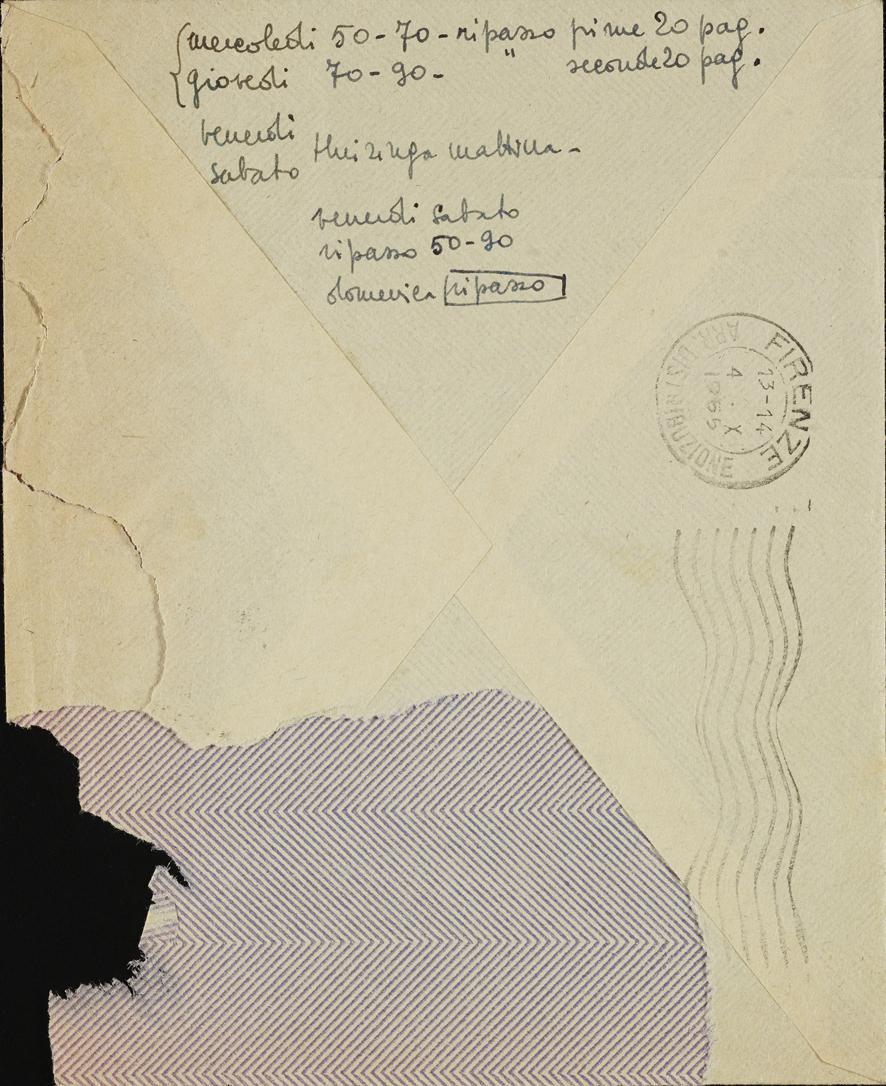 mercoledì 50-70-ripasso prime 20 pag.
giovedì 70-90- " seconde 20 pag.
venerdì
sabato Huizinga mattina-
venerdì sabato
ripasso 50-90
domenica ripasso
FIRENZE
ARR. DISTRIBUZIONE
13-14
4 . X
1966